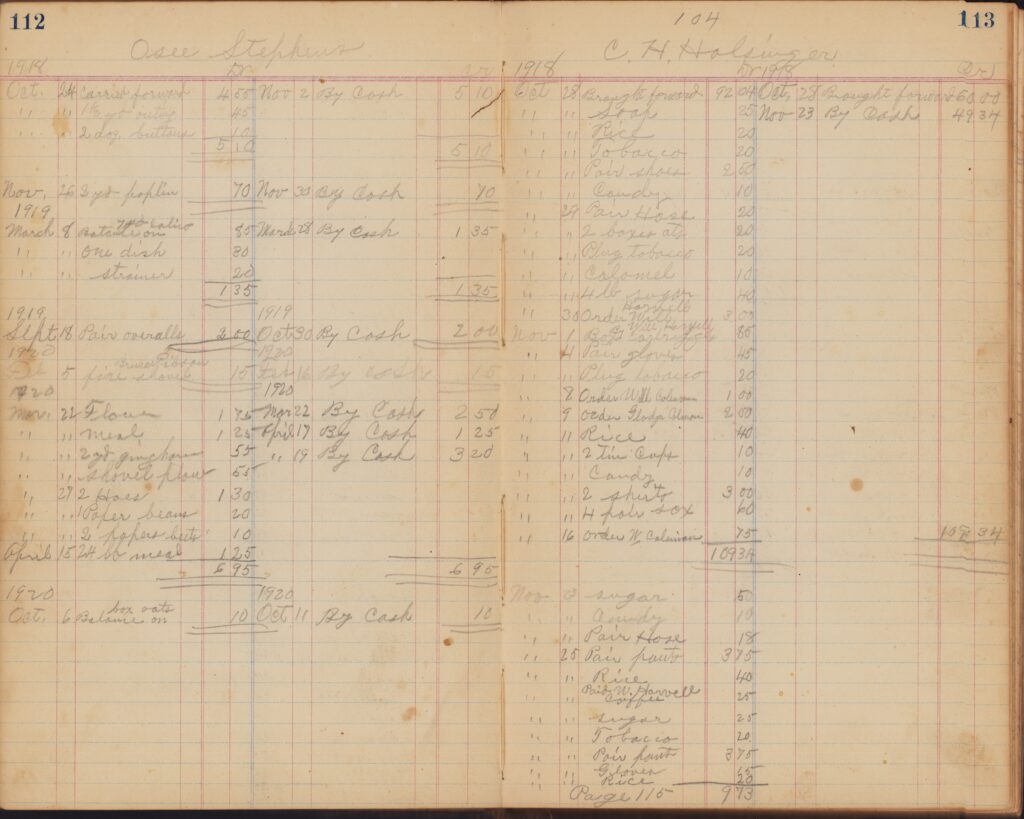 112
Osee Stephens
1918 Dr Cr
Oct. 24 Carried forward 4 55 Nov 2 By Cash 5 10
" " yd outing 45
" " 2 doz. buttons 10
5 10 5 10
Nov. 26 2 yd poplin 70 Nov 30 By Cash 70
1919
March 8 Balance on 85 March 28 By Cash 1 35
" " One dish 30
" " strainer 20
1 35 1 35
1919 1919
Sept 18 Pair overalls 2 00 Oct 30 By Cash 2 00
1920 1920
5 fire shovel 15 Feb 16 By Cash 15
1920 1920
Mar. 22 Flour 1 75 Mar 22 By Cash 2 50
" " meal 1 25 April 17 By Cash 1 25
" " 2 yd gingham 55 " 19 By Cash 3 20
" " shovel plow 55
" 27 2 Hoes 1 30
" " 1 Paper beans 20
" " 2 papers beets 10
April 15 24 lb meal 1 25
6 95 6 95
1920 1920
box oats
Oct. 6 Balance on 10 Oct 11 By Cash 10
113
104
C. H. Holsinger
1918 Dr 1918 Cr
Oct 28 Brought forward 92 04 Oct. 28 Brought forward 60 00
" " Soap 25 Nov 23 By Cash 49 34
" " Rice 20
" " Tobacco 20
" " Pair shoes 2 50
" " Candy 10
" 29 Pair Hose 20
" " 2 boxes 20
" " Plug tobacco 20
" " Calomel 10
" " 4 lb sugar 40
Harvell
" 30 Order Will 3 00
Will Harvell
Nov 1 Box Cartridges 85
" 4 Pair gloves 45
" " Plug tobacco 20
" 8 Order Will Coleman 1 00
" 9 Order 2 00
" 11 Rice 40
" " 2 tin Cups 10
" " Candy 10
" " 2 shirts 3 00
" " 4 pair sox 60
" 16 Order W. Coleman 75
109 34 109 34
Nov sugar 5
" " Candy 10
" " Pair Hose 18
" 25 Pair pants 3 75
" " Rice 40
Paid W. Harvell
" " Coffee 25
" " sugar 25
" " Tobacco 20
" " Pair pants 3 75
" " Gloves
" " Rice 20
Page 115 9 73